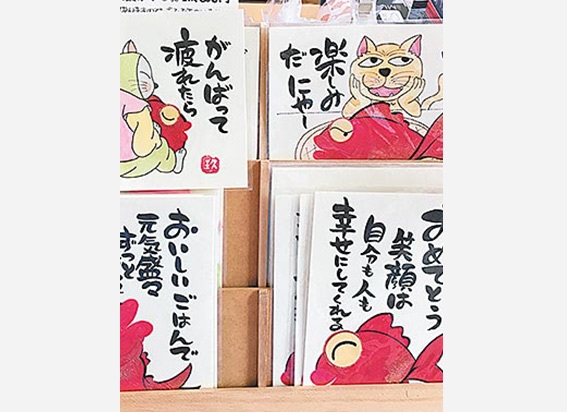 がんばって
疲れたら
楽しみ
だにゃー
おいしいごはんで
元気盛々
ずっと
おめでとう
笑顔は
自分も人も
幸せにしてくれる